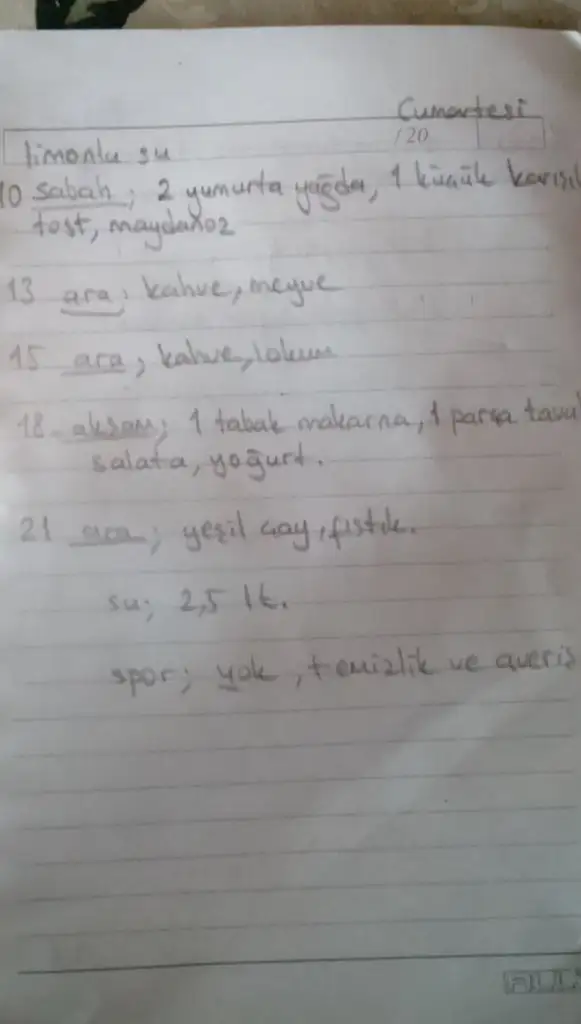 Cumartesi
/20
limonlu su
10 sabah; 2 yumurta yağda, 1 küçük karışık
tost, maydanoz
13 ara; kahve, meyve
15 ara; kahve, lokum
18 akşam; 1 tabak makarna, 1 parça tavu
salata, yoğurt.
21 ara; yeşil çay, fıstık.
su; 2,5 lt.
spor; yok, temizlik ve averiş